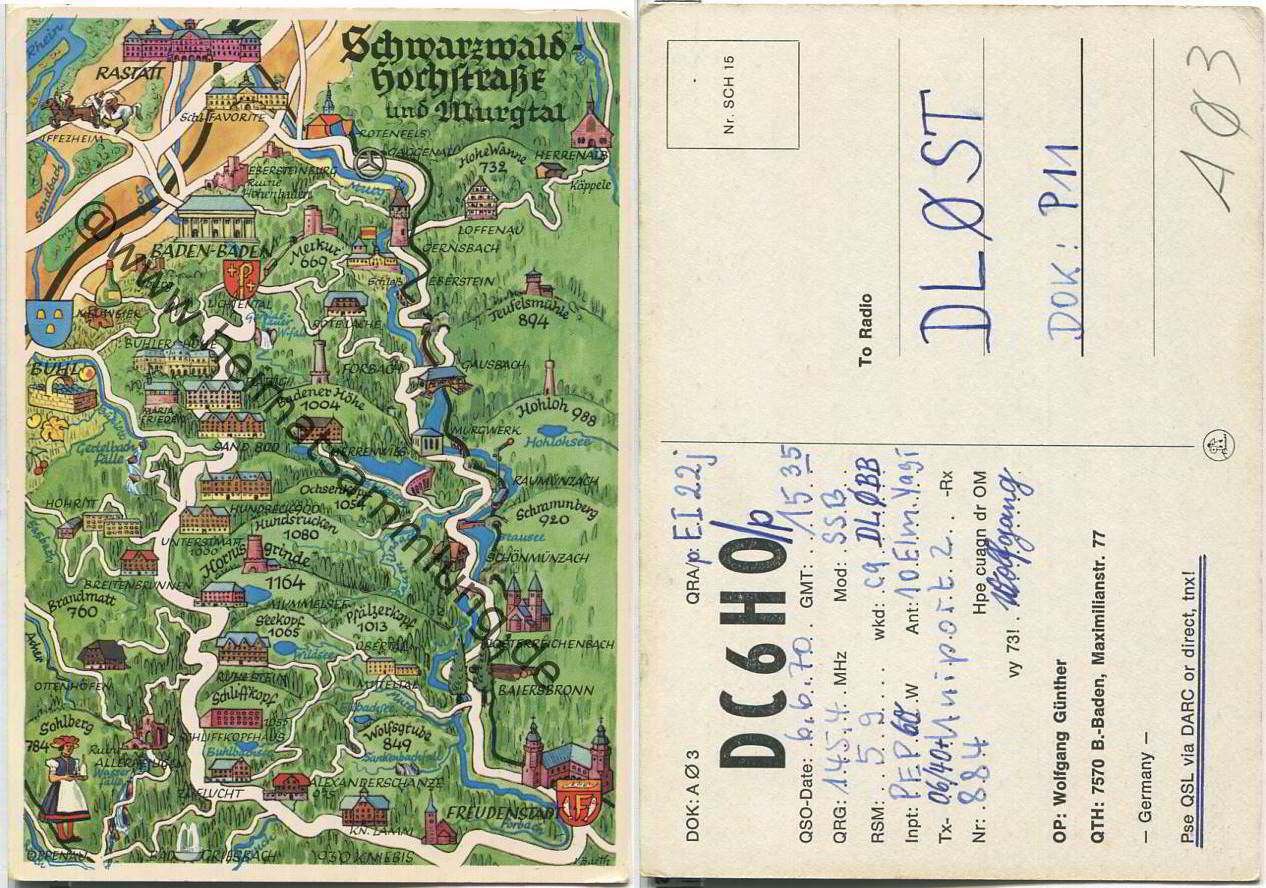 Schwarzwald-
Hochstraße
und Murgtal
Rhein
RASTATT
Schl. FAVORITE
IFFEZHEIM
ROTENFELS
GAGGENAU
Hohe Wanne
732
HERRENALB
Käppele
EBERSTEINBURG
Ruine
Hohenbaden
Murg
LOFFENAU
BADEN-BADEN
Merkur
669
GERNSBACH
Schloß
EBERSTEIN
Teufelsmühle
894
LICHTENTAL
NEUWEIER
BÜHL
FORBACH
GAUSBACH
Badener Höhe
1004
Hohloh 988
Hohlohsee
MARIA
Gertelbach
Fälle
SAND 800
HERRENWIES
MURGWERK
RAUMÜNZACH
Ochsenkopf
1054
Schrammberg
920
HUNDSECK 900
Hundsrücken
1080
UNTERSTMATT
1000
Hornisgrinde
1164
SCHÖNMÜNZACH
BREITENBRUNNEN
Brandmatt
760
MUMMELSEE
Seekopf
1065
Pfälzerkopf
1013
KLOSTERREICHENBACH
Acher
OTTENHÖFEN
RUHESTEIN
MITTELTAL
BAIERSBRONN
Schliffkopf
1055
SCHLIFFKOPFHAUS
Wolfsgrube
849
Sankenbachfall
Sohlberg
784
ALLERHEILIGEN
ZUFLUCHT
ALEXANDERSCHANZE
FREUDENSTADT
KN. LAMM
OPPENAU
BAD GRIESBACH
930 KNIEBIS
@ www.heimatsammlung.de
Nr. SCH 15
A Ø 3
To Radio
DLØST
DOK: P11
DOK: A Ø 3
QRA/p: EI22j
DC6HO/p
QSO-Date: 6.6.70. GMT: 15 35
QRG: 145.4. MHz Mod: SSB
RSM: 59 wkd: cq. DLØBB
Inpt: PEP 60.W Ant: 10 Elm. Yagi
Tx- 06/40H Uniport 2. -Rx
Nr: 884 Hpe cuagn dr OM
vy 73! Wolfgang
OP: Wolfgang Günther
QTH: 7570 B.-Baden, Maximilianstr. 77
— Germany —
Pse QSL via DARC or direct, tnx!